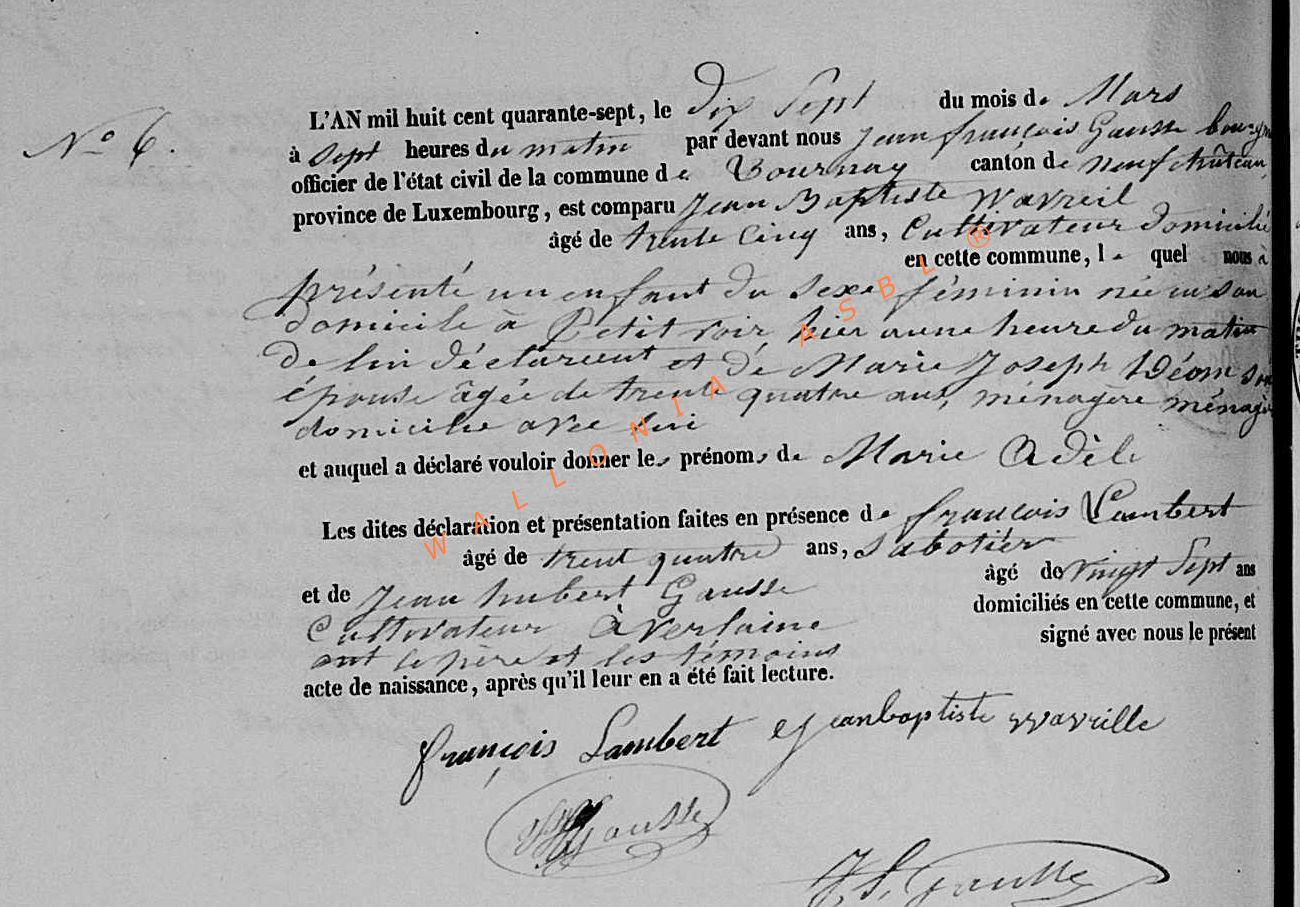 N° 6.
L'AN mil huit cent quarante-sept, le dix Sept du mois de Mars
à Sept heures du matin par devant nous Jean françois Gausse bourgm
officier de l'état civil de la commune de Tournay canton de neufchâteau,
province de Luxembourg, est comparu Jean Baptiste Wavreil
âgé de trente Cinq ans, Cultivateur domicilié
en cette commune, le quel nous à
présenté un enfant du sexe féminin née en son
domicile à Petitvoir, hier a une heure du matin
de lui déclarant et de Marie Joseph Déom son
épouse âgée de trente quatre ans, ménagère ménagè
domicilie avec lui
et auquel a déclaré vouloir donner les prénoms de Marie Adèle
Les dites déclaration et présentation faites en présence de françois Lambert
âgé de trent quatre ans, Sabotier
et de Jean hubert Gausse âgé de vingt Sept ans
Cultivateur à Verlaine domiciliés en cette commune, et
ont le père et les témoins signé avec nous le présent
acte de naissance, après qu'il leur en a été fait lecture.
françois Lambert jeanbaptiste wavreille
Gausse
J. f. Gausse
WALLONIA ASBL ®